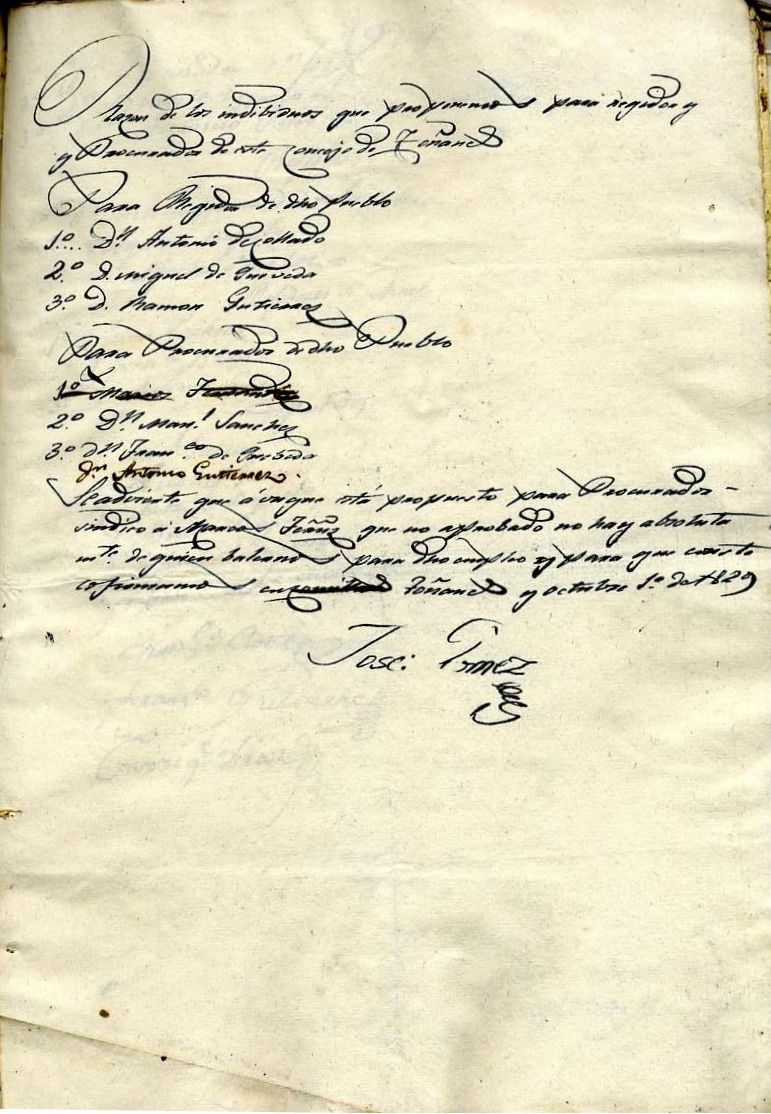 Razon de los indibiduos que proponemos para regidor y
y Procurador de este Concejo de Toñanes
Para Regidor de dho Pueblo
1º.. Dn Antonio de Collado
2º. D. Miguel de Queveda
3º. D. Ramon Gutierrez
Para Procurador de dho Pueblo
1º Marcos Fernandez
2º Dn Manl Sanchez
3º. dn Franco de Quebeda
dn Antonio Gutierrez.
Se advierte que
está propuesto para Procurador
sindico á Marcos Fernz que no aprobado no hay absoluta
mte de quien balernos para dho empleo y para que conste
lo firmamos en Toñanes y octubre 1º de 1829
Jose: Gomez